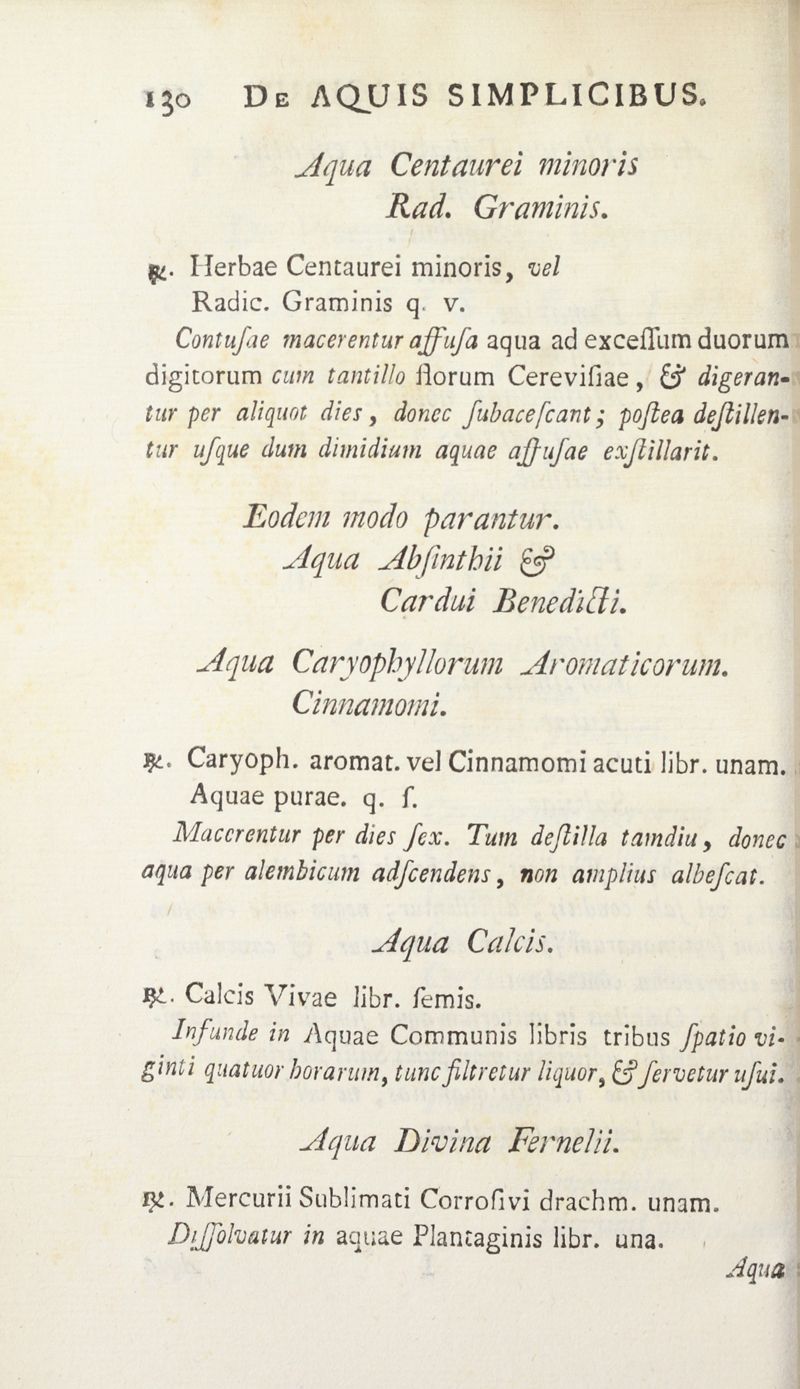 130 DE AQUIS SIMPLICIBUS.
Aqua Centaurei minoris
Rad. Graminis.
℞. Herbae Centaurei minoris, vel
Radic. Graminis q. v.
Contuſae macerentur affuſa aqua ad exceſſum duorum
digitorum cum tantillo florum Cereviſiae, & digeran-
tur per aliquot dies, donec ſubaceſcant; poſtea deſtillen-
tur uſque dum dimidium aquae affuſae exſtillarit.
Eodem modo parantur.
Aqua Abſinthii &
Cardui Benedicti.
Aqua Caryophyllorum Aromaticorum.
Cinnamomi.
℞. Caryoph. aromat. vel Cinnamomi acuti libr. unam.
Aquae purae. q. ſ.
Macerentur per dies ſex. Tum deſtilla tamdiu, donec
aqua per alembicum adſcendens, non amplius albeſcat.
Aqua Calcis.
℞. Calcis Vivae libr. ſemis.
Infunde in Aquae Communis libris tribus ſpatio vi-
ginti quatuor horarum, tunc filtretur liquor, & ſervetur uſui.
Aqua Divina Fernelii.
℞. Mercurii Sublimati Corroſivi drachm. unam.
Diſſolvatur in aquae Plantaginis libr. una.
Aqua